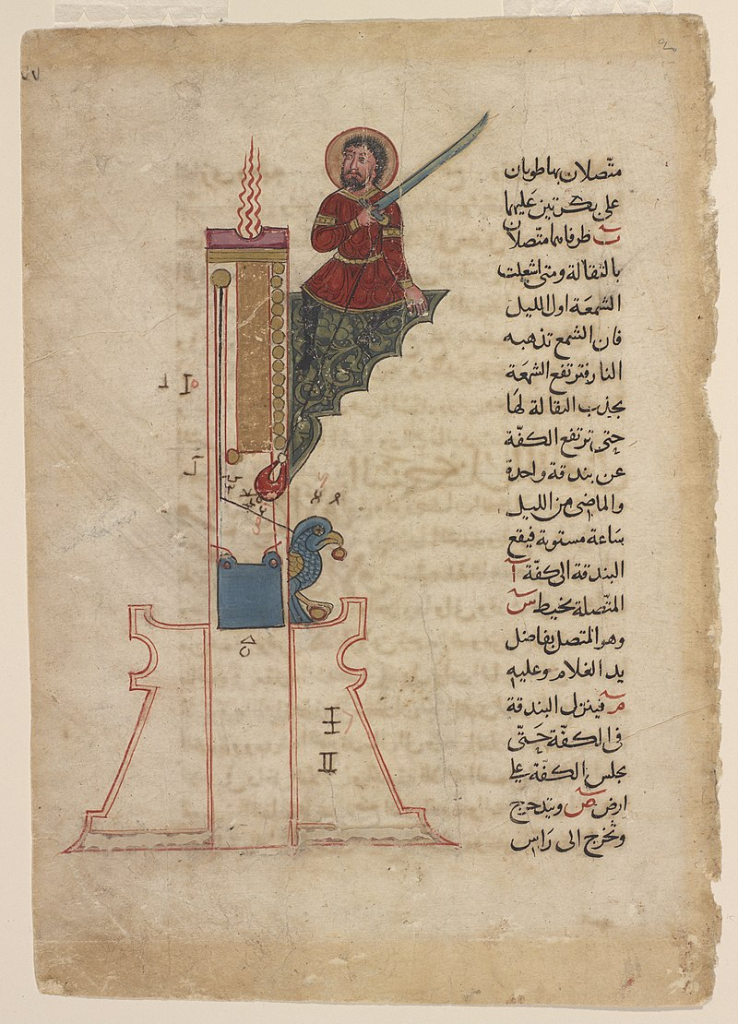 متصلان بهما طوبان
على بكرتين عليهما
طرفاهما متصلان
بالثقالة ومتى اشعلت
الشمعة اول الليل
فان الشمع تذهبه
النار فترتفع الشمعة
بجذب الثقالة لها
حتى ترتفع الكفة
عن بندقة واحدة
والماضى من الليل
ساعة مستوية فيقع
البندقة الى كفة آ
المتصلة بخيط س
وهو المتصل بفاضل
يد الغلام وعليه
م فينزل البندقة
فى الكفة حتى
يجلس الكفة على
ارض ص ويتدحرج
وتخرج الى راس